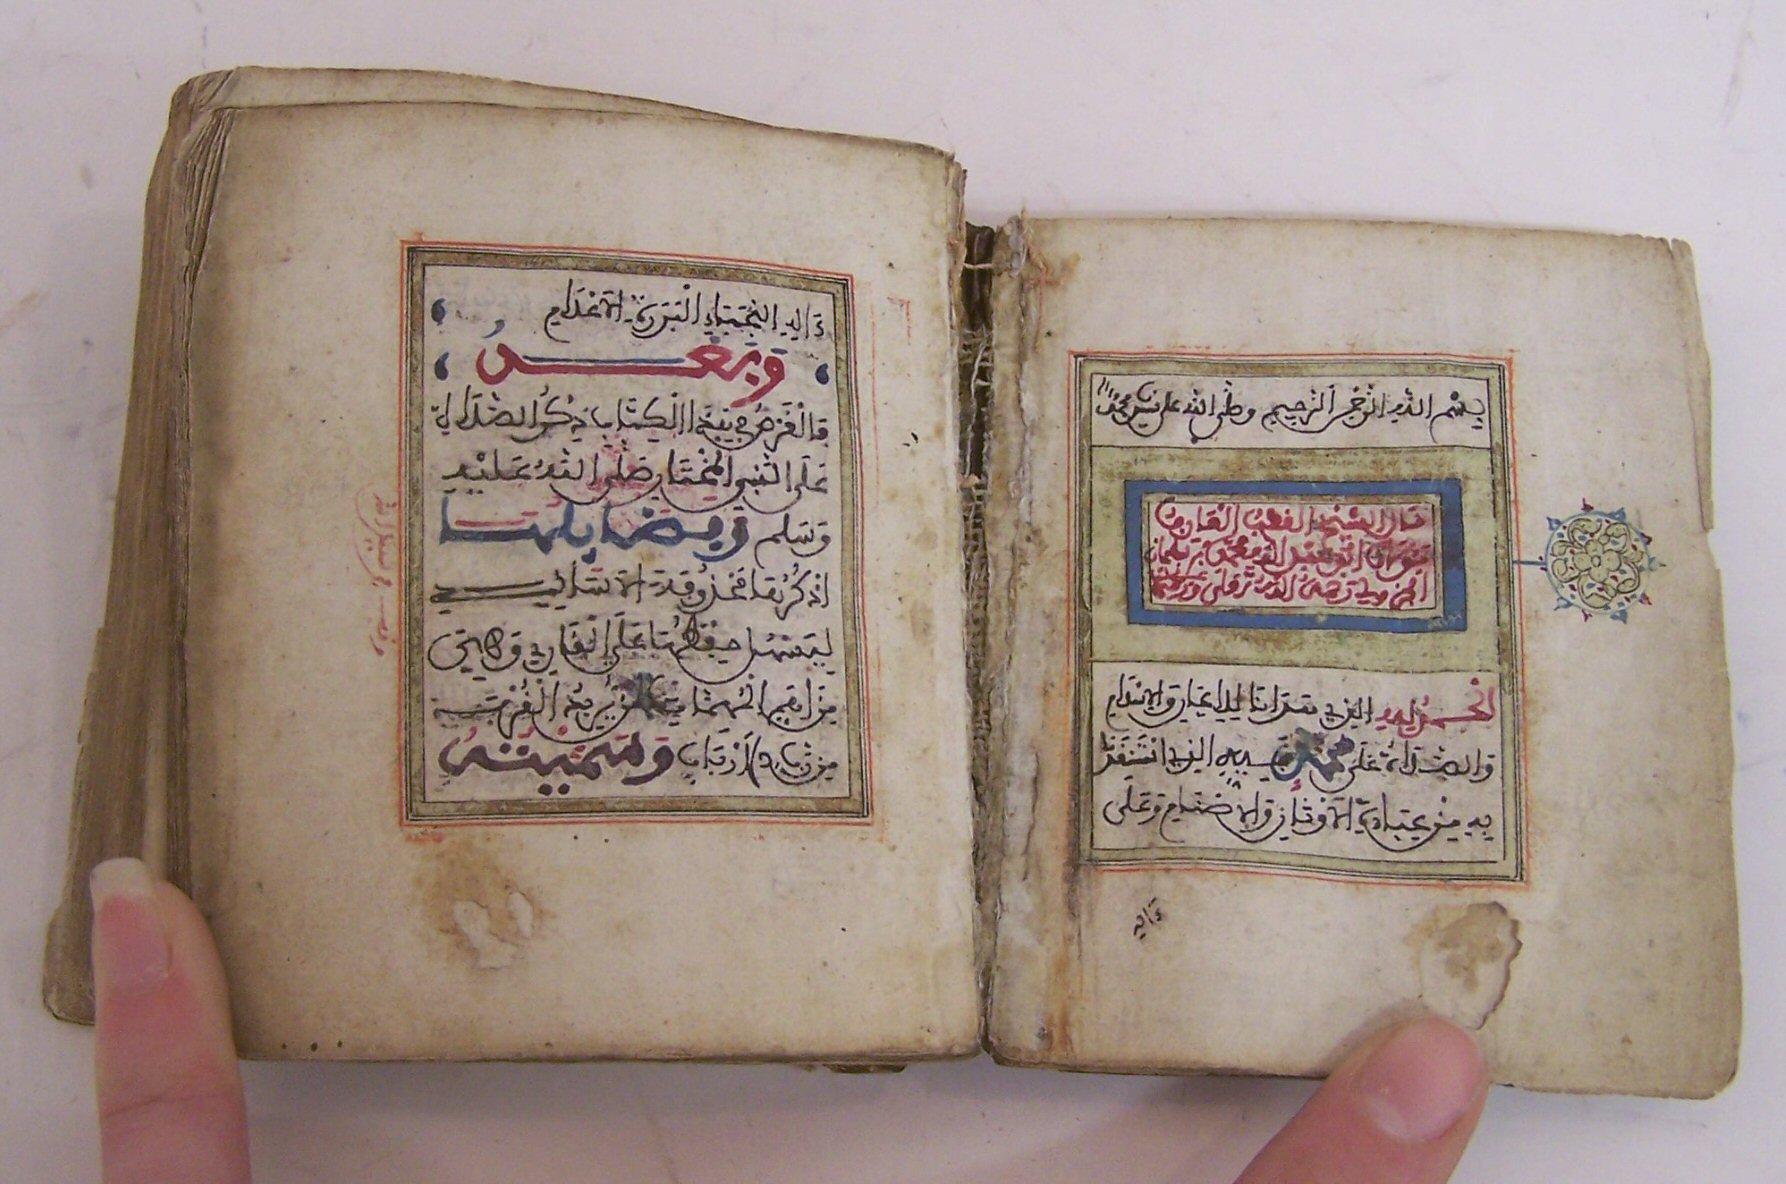 بسم الله الرحمن الرحيم وصلى الله على سيدنا محمد
قال الشيخ الفقيه العارف
أبو عبد الله محمد بن سليمان
الجزولي رحمه الله ورضي عنه
الحمد لله الذي هدانا للإيمان والإسلام
والصلاة على محمد نبيه الذي استنقذنا
به من عبادة الأوثان والأصنام وعلى
ءاله
ءاله النجباء البررة الكرام
وبعد
فالغرض في هذا الكتاب ذكر الصلاة
على النبي المختار صلى الله عليه
وسلم وفضائلها
نذكرها محذوفة الأسانيد
ليسهل حفظها على القارئ وهي
من أهم المهمات لمن يريد القرب
من رب الأرباب وسميته